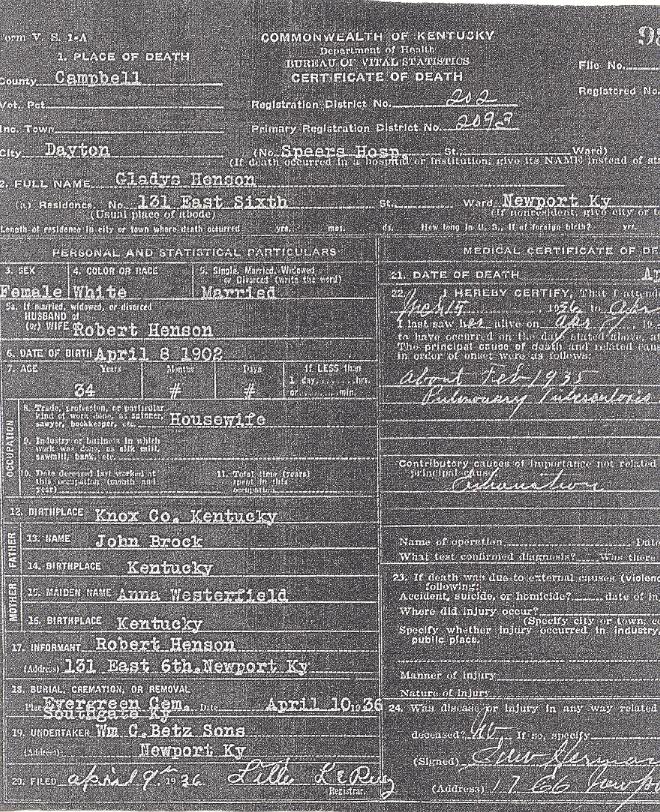 orm V. S. 1-A
COMMONWEALTH OF KENTUCKY
Department of Health
BUREAU OF VITAL STATISTICS
CERTIFICATE OF DEATH
98
File No.
Registered No.
1. PLACE OF DEATH
County Campbell
Vot. Pct
Inc. Town
City Dayton
Registration District No. 202
Primary Registration District No. 2093
(No. Speers Hosp. St. Ward)
(If death occurred in a hospital or Institution, give its NAME instead of st
2. FULL NAME Gladys Henson
(a) Residence. No. 131 East Sixth St., Ward Newport Ky
(Usual place of abode) (If nonresident, give city or t
Length of residence in city or town where death occurred yrs. mos. ds. How long in U. S., if of foreign birth? yrs.
PERSONAL AND STATISTICAL PARTICULARS
3. SEX 4. COLOR OR RACE 5. Single, Married, Widowed or Divorced (write the word)
Female White Married
5a. If married, widowed, or divorced
HUSBAND of
(or) WIFE Robert Henson
6. DATE OF BIRTH April 8 1902
7. AGE Years Months Days If LESS than
1 day, hrs.
34 # # or min.
OCCUPATION
8. Trade, profession, or particular
kind of work done, as spinner,
sawyer, bookkeeper, etc. Housewife
9. Industry or business in which
work was done, as silk mill,
sawmill, bank, etc.
10. Date deceased last worked at
this occupation (month and
year)
11. Total time (years)
spent in this
occupation
12. BIRTHPLACE Knox Co. Kentucky
FATHER
13. NAME John Brock
14. BIRTHPLACE Kentucky
MOTHER
15. MAIDEN NAME Anna Westerfield
16. BIRTHPLACE Kentucky
17. INFORMANT Robert Henson
(Address) 131 East 6th.Newport Ky
18. BURIAL, CREMATION, OR REMOVAL
Place Evergreen Cem. Date April 10 1936
Southgate Ky
19. UNDERTAKER Wm C.Betz Sons
(Address) Newport Ky
20. FILED April 9th 1936
Registrar.
MEDICAL CERTIFICATE OF DE
21. DATE OF DEATH Ap
22. I HEREBY CERTIFY, That I attend
1936 to apr
I last saw her alive on apr 19
to have occurred on the date stated above, at
The principal cause of death and related caus
in order of onset were as follows:
about Feb 1935
Pulmonary Tuberculosis
Contributory causes of importance not related
principal cause
Exhaustion
Name of operation Date
What test confirmed diagnosis? Was there
23. If death was due to external causes (violenc
following:
Accident, suicide, or homicide? date of in
Where did injury occur?
(Specify city or town, co
Specify whether injury occurred in industry,
public place.
Manner of injury
Nature of injury
24. Was disease or injury in any way related
deceased? No If so, specify
(Signed)
(Address) Newpo